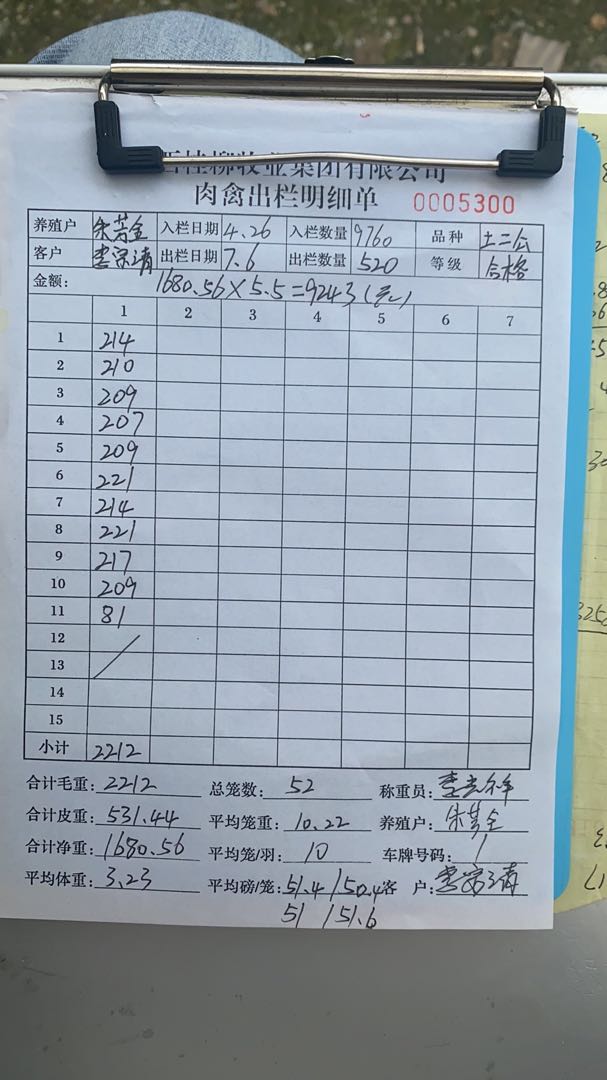 桂柳牧业集团有限公司
肉禽出栏明细单 0005300
养殖户 入栏日期 4.26 入栏数量 9760 品种 土二公
客户 出栏日期 7.6 出栏数量 520 等级 合格
金额: 1680.56×5.5=9243(元)
1 2 3 4 5 6 7
1 214
2 210
3 209
4 207
5 209
6 221
7 214
8 221
9 217
10 209
11 81
12
13
14
15
小计 2212
合计毛重: 2212 总笼数: 52 称重员:
合计皮重: 531.44 平均笼重: 10.22 养殖户:
合计净重: 1680.56 平均笼/羽: 10 车牌号码: /
平均体重: 3.23 平均磅/笼: 51.4/50.4 客 户:
51 /51.6